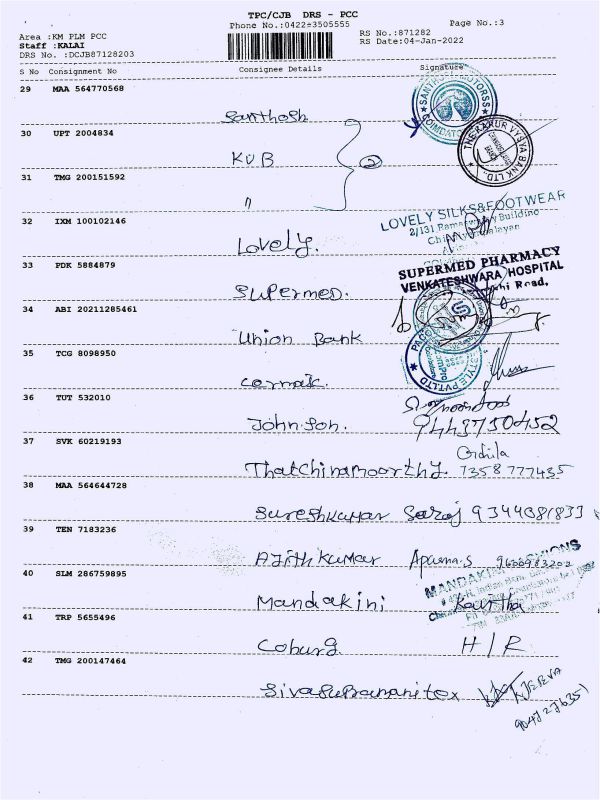 TPC/CJB DRS - PCC
Phone No.:0422±3505555 Page No.:3
Area :KM PLM PCC RS No.:871282
Staff :KALAI RS Date:04-Jan-2022
DRS No. :DCJB87128203
S No Consignment No Consignee Details Signature
29 MAA 564770568
Santhosh
SANTHOSH MOTORSS
COIMBATORE
30 UPT 2004834
KVB 2
THE KARUR VYSYA BANK LTD.
31 TMG 200151592
"
32 IXM 100102146
Lovely.
LOVELY SILKS&FOOTWEAR
2/131 Building
33 PDK 5884879
Supermed.
SUPERMED PHARMACY
VENKATESHWARA HOSPITAL
Road,
34 ABI 20211285461
Union Bank
35 TCG 8098950
STYLE PVT.LTD
36 TUT 532010
Johnson. 9443750452
37 SVK 60219193
Thatchinamoorthy. 7358777435
38 MAA 564644728
Sureshkumar Saroj 9344081833
39 TEN 7183236
Ajithkumar Aparna.S
40 SLM 286759895
Mandakini
MANDAKINI FASHIONS
41 TRP 5655496
Coburg. H/R
42 TMG 200147464
Sivasubramanitex